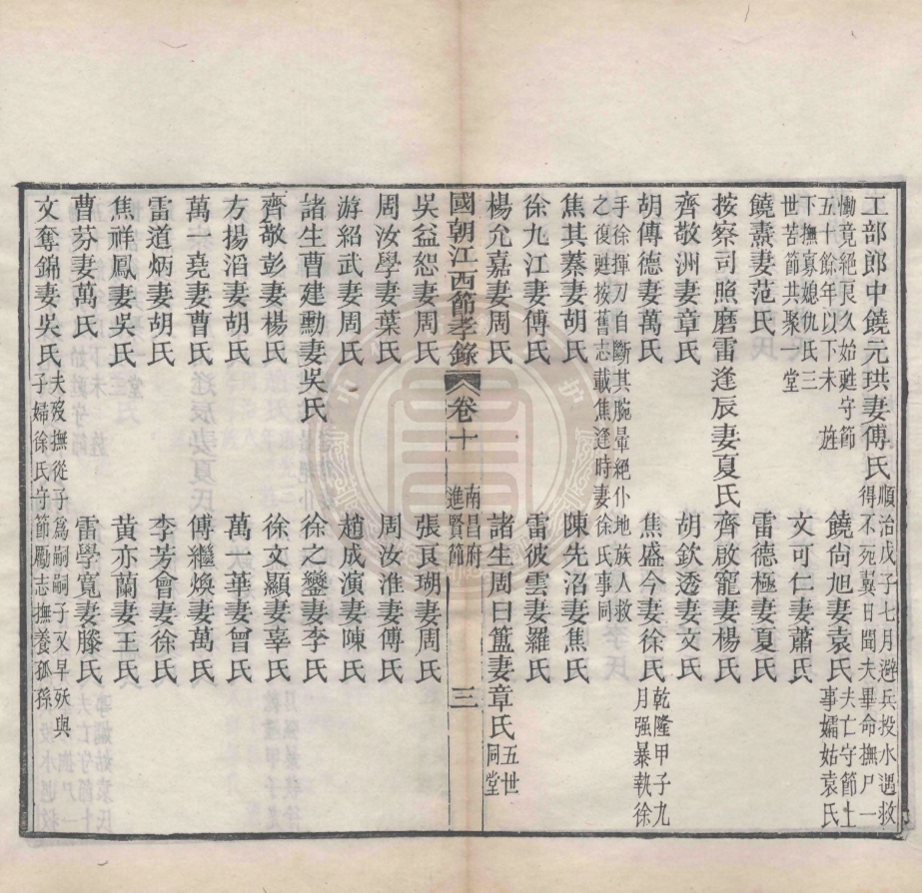 工部郎中饒元珙妻傅氏
順治戊子七月避兵投水遇救
得不死翼日聞夫畢命撫尸一
慟竟絕良久始甦守節
五十餘年以下未旌
饒尙旭妻袁氏
夫亡守節上
事孀姑袁氏
下撫寡媳仇氏三
世苦節共聚堂
文可仁妻蕭氏
饒燾妻范氏
雷德極妻夏氏
按察司照磨雷逢辰妻夏氏
齊啟寵妻楊氏
齊敬洲妻章氏
胡欽透妻文氏
胡傳德妻萬氏
焦盛今妻徐氏
乾隆甲子九
月强暴執徐
手徐揮刀自斷其腕暈絕仆地族人救
之復甦按舊志載焦逢時妻徐氏事同
焦其蓁妻胡氏
陳先沼妻焦氏
徐九江妻傅氏
雷彼雲妻羅氏
楊允嘉妻周氏
諸生周曰簠妻章氏
五世
同堂
國朝江西節孝錄
卷十
南昌府
進賢節
三
吳益恕妻周氏
張良瑚妻周氏
周汝學妻葉氏
周汝淮妻傅氏
游紹武妻周氏
趙成演妻陳氏
諸生曹建勳妻吳氏
徐之鑾妻李氏
齊敬彭妻楊氏
徐文顯妻辜氏
方揚滔妻胡氏
萬一華妻曾氏
萬一堯妻曹氏
傅繼煥妻萬氏
雷道炳妻胡氏
李芳會妻徐氏
焦祥鳳妻吳氏
黃亦蘭妻王氏
曹芬妻萬氏
雷學寬妻滕氏
文奪錦妻吳氏
夫歿撫從子爲嗣嗣子又早殀與
子婦徐氏守節勵志撫養孤孫